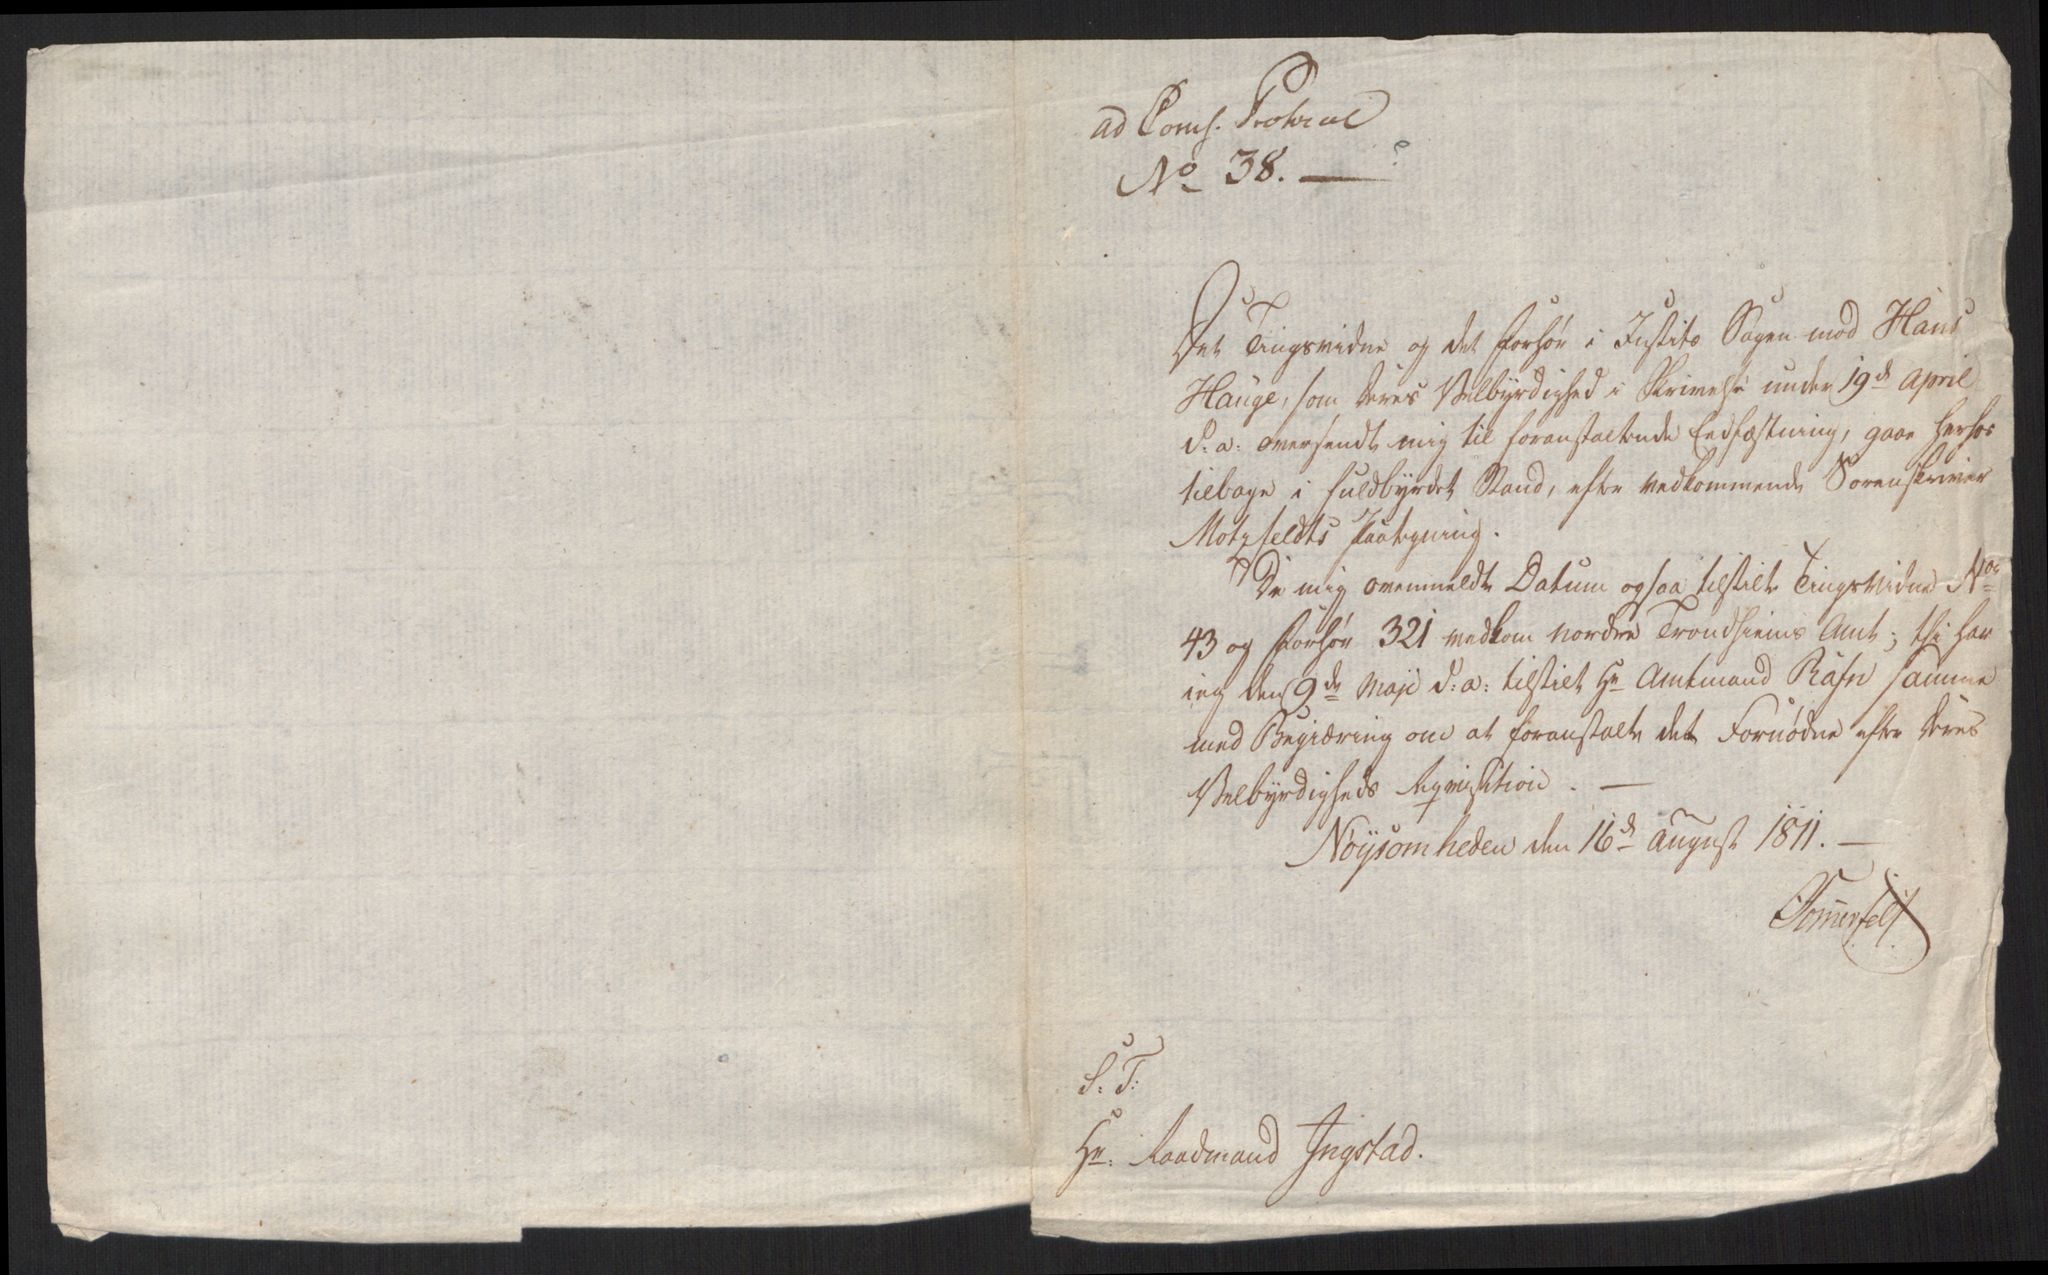 ad Comiss. Protocol
No 38. —
Det Tingsvidne og det Forhør i Justits Sagen mod Hans
Hauge, som Deres Velbyrdighed i Skrivelse under 19de April
d: a: oversendte mig til foranstaltende Eedfæstning, gaae herhos
tilbage i fuldbyrdet Stand, efter vedkommende Sorenskriver
Motzfeldts Paategning.
De mig ovenmeldte Datum ogsaa tilstilte Tingsvidne No
43 og Forhør 321 vedkom nordre Trondhiems Amt; thi har
ieg den 9de Maji d: a: tilstilet Hr Amtmand Rafn samme
med Begiæring om at foranstalte det Fornødne efter Deres
Velbyrdigheds Requisition. —
Nøysomheden den 16de August 1811. —
Sommerfelt
S: T:
Hr: Raadmand Ingstad.